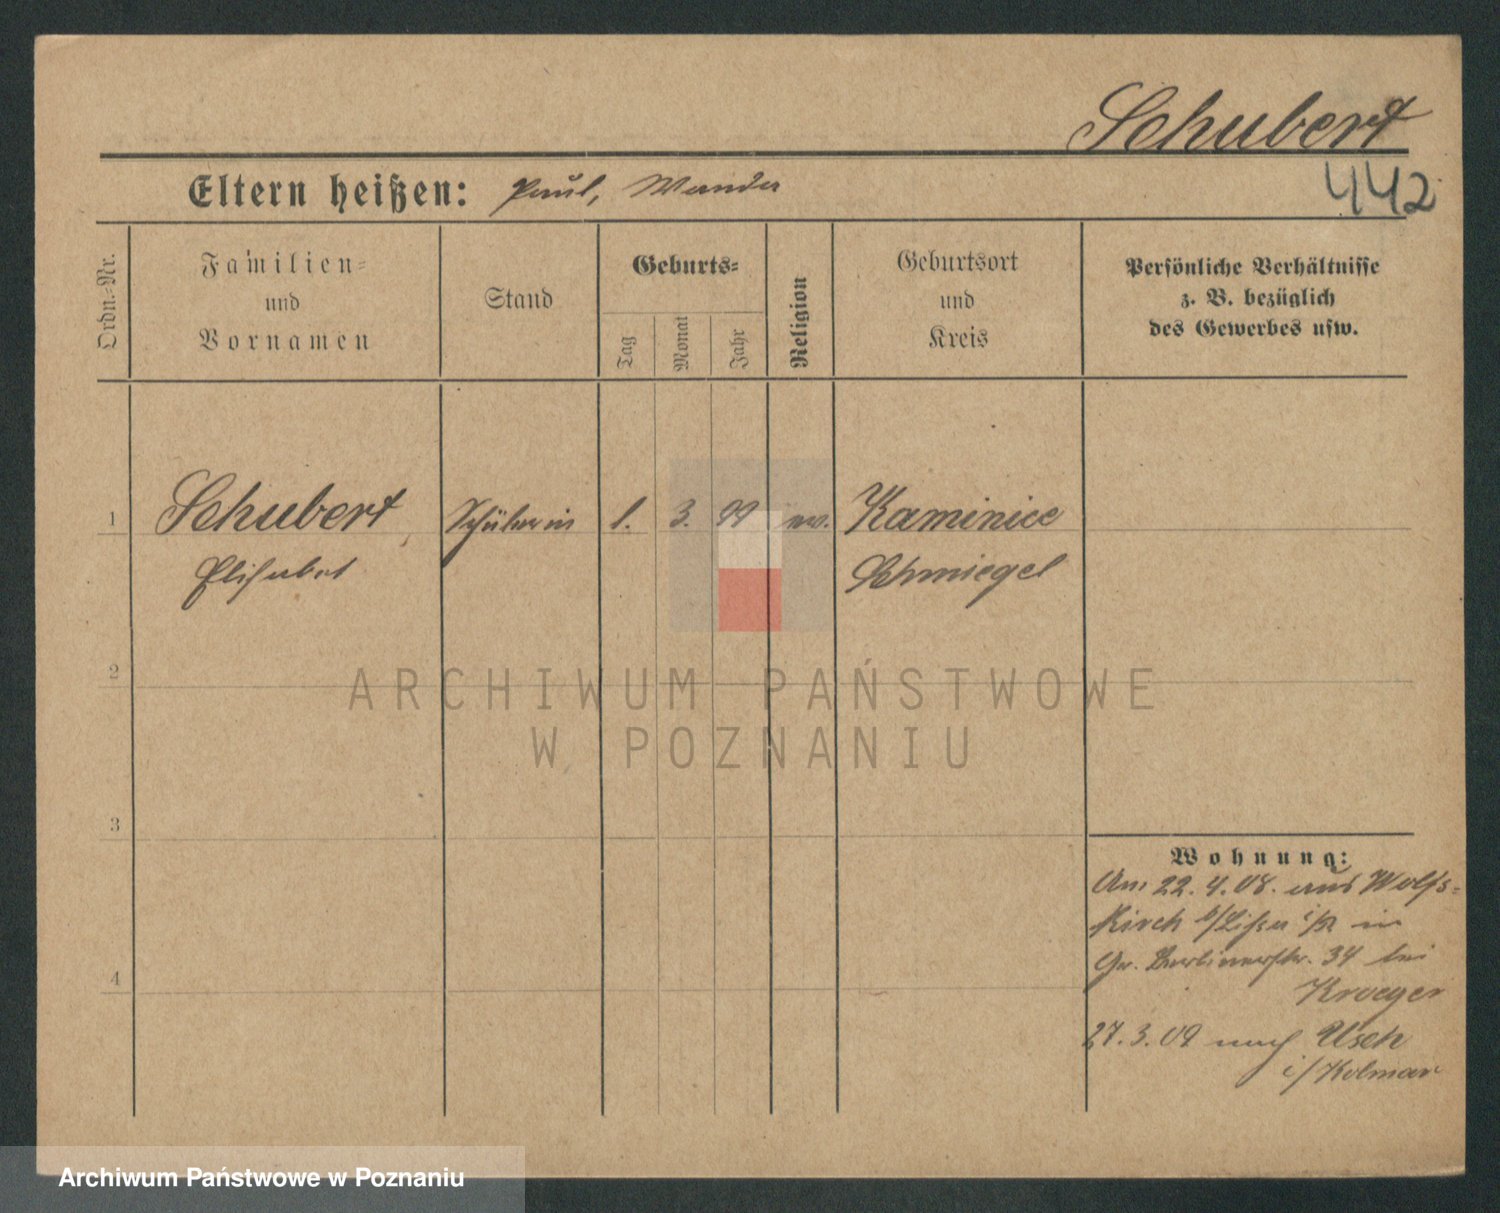 Schubert
442
Eltern heißen: Paul, Wanda
Ordn.-Nr.
Familien-
und
Vornamen
Stand
Geburts-
Tag
Monat
Jahr
Religion
Geburtsort
und
Kreis
Persönliche Verhältnisse
z. B. bezüglich
des Gewerbes usw.
1 Schubert Schülerin 1. 3. 99 ev. Kaminiec
Elisabet Schmiegel
2
3
4
Wohnung:
Am 22.4.08. aus Wolfs-
kirch b/Lissa i/P. in
Gr. Berlinerstr. 34 bei
Kroeger
27.3.09 nach Usch
i/Kolmar
ARCHIWUM PAŃSTWOWE
W POZNANIU
Archiwum Państwowe w Poznaniu